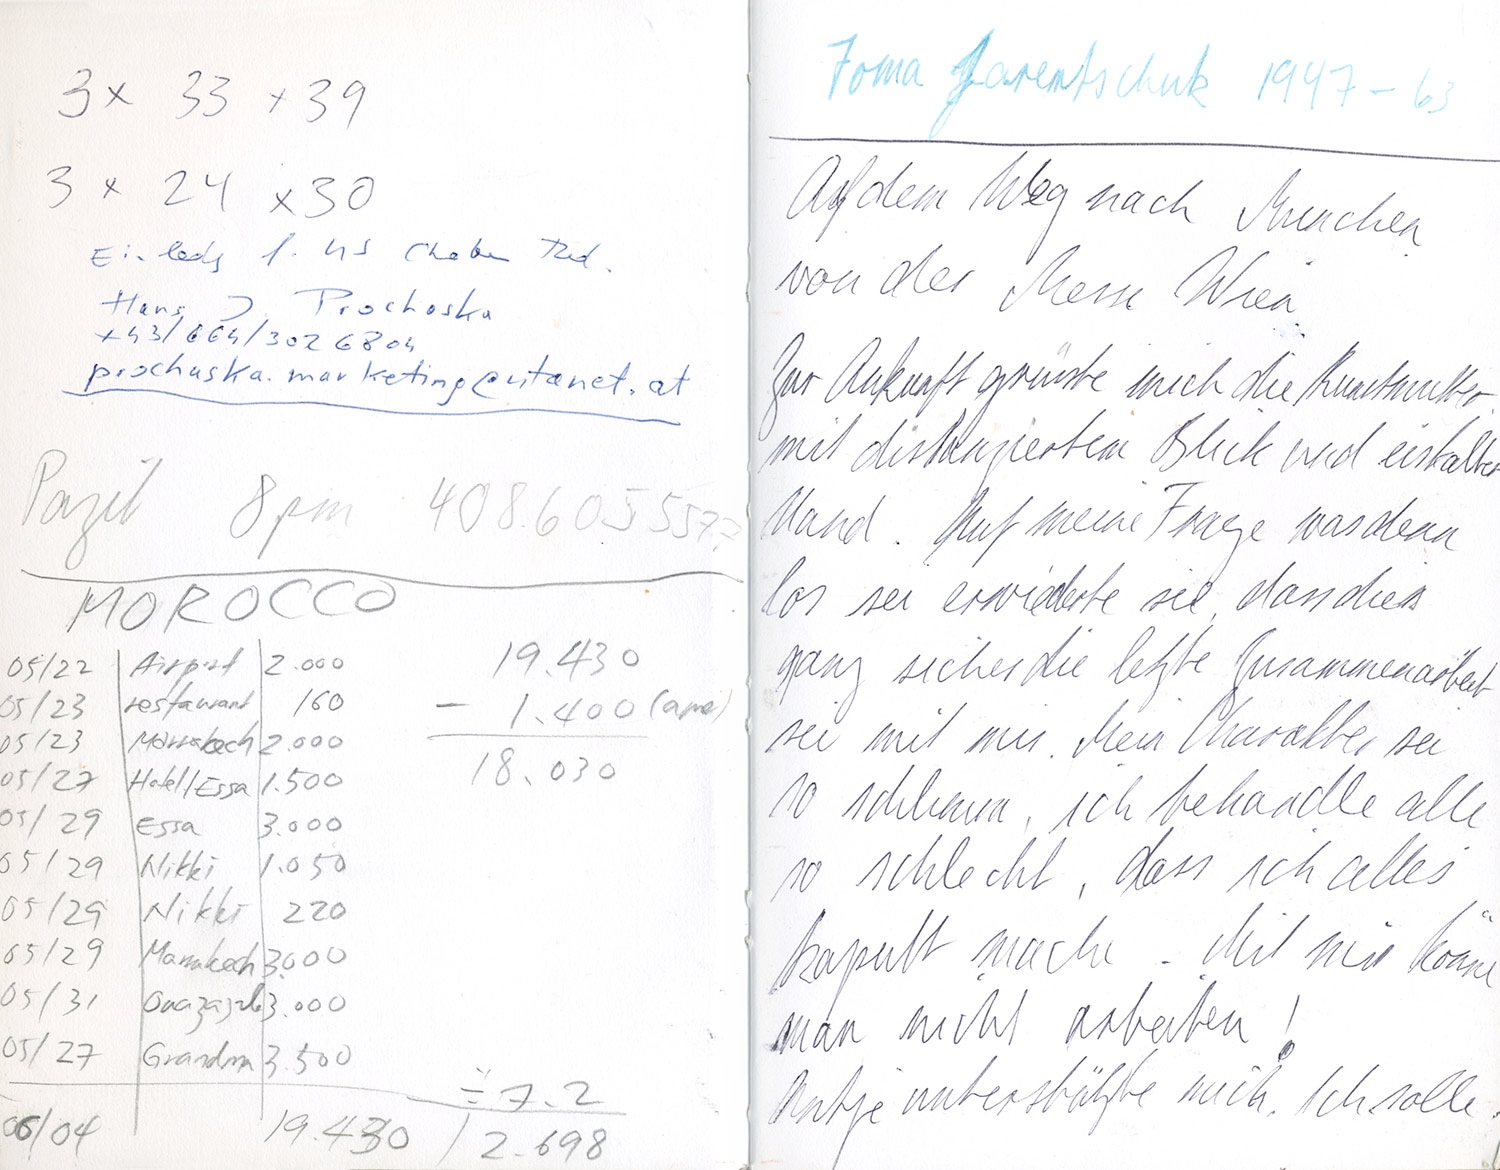 3 x 33 x 39
3 x 24 x 30
Hans J. Prochaska
+43/664/302 6804
prochaska.marketing@utanet.at
8 pm 408.605 5577
MOROCCO
05/22 Airport 2.000
05/23 restaurant 160
05/23 Marrakech 2.000
05/27 Hotel/Essa 1.500
05/29 Essa 3.000
05/29 Nikki 1.050
05/29 Nikki 220
05/29 Marrakech 3000
05/31 3.000
05/27 Grandma 3.500
06/04 19.430
19.430
- 1.400
18.030
÷ 7.2
2.698
1947 - 63
Auf dem Weg nach Muenchen
von der Messe Wien
Zur Ankunft grüsste mich die Kunstmutter
mit distanziertem Blick und eiskalter
Hand. Auf meine Frage was denn
los sei erwiderte sie, dass dies
ganz sicher die letzte Zusammenarbeit
sei mit mir. Mein Charakter sei
so schlimm, ich behandle alle
so schlecht, dass ich alles
kaputt mache - Mit mir könne
man nicht arbeiten!
Antje unterstützte mich. Ich solle